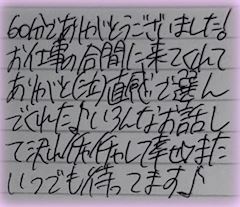 60分でありがとうございました!
お仕事の合間に来てくれて
ありがと(泣)直感で選ん
でくれた♪いろんなお話し
て沢山イチャイチャして幸せ♡また
いつでも待ってます♪